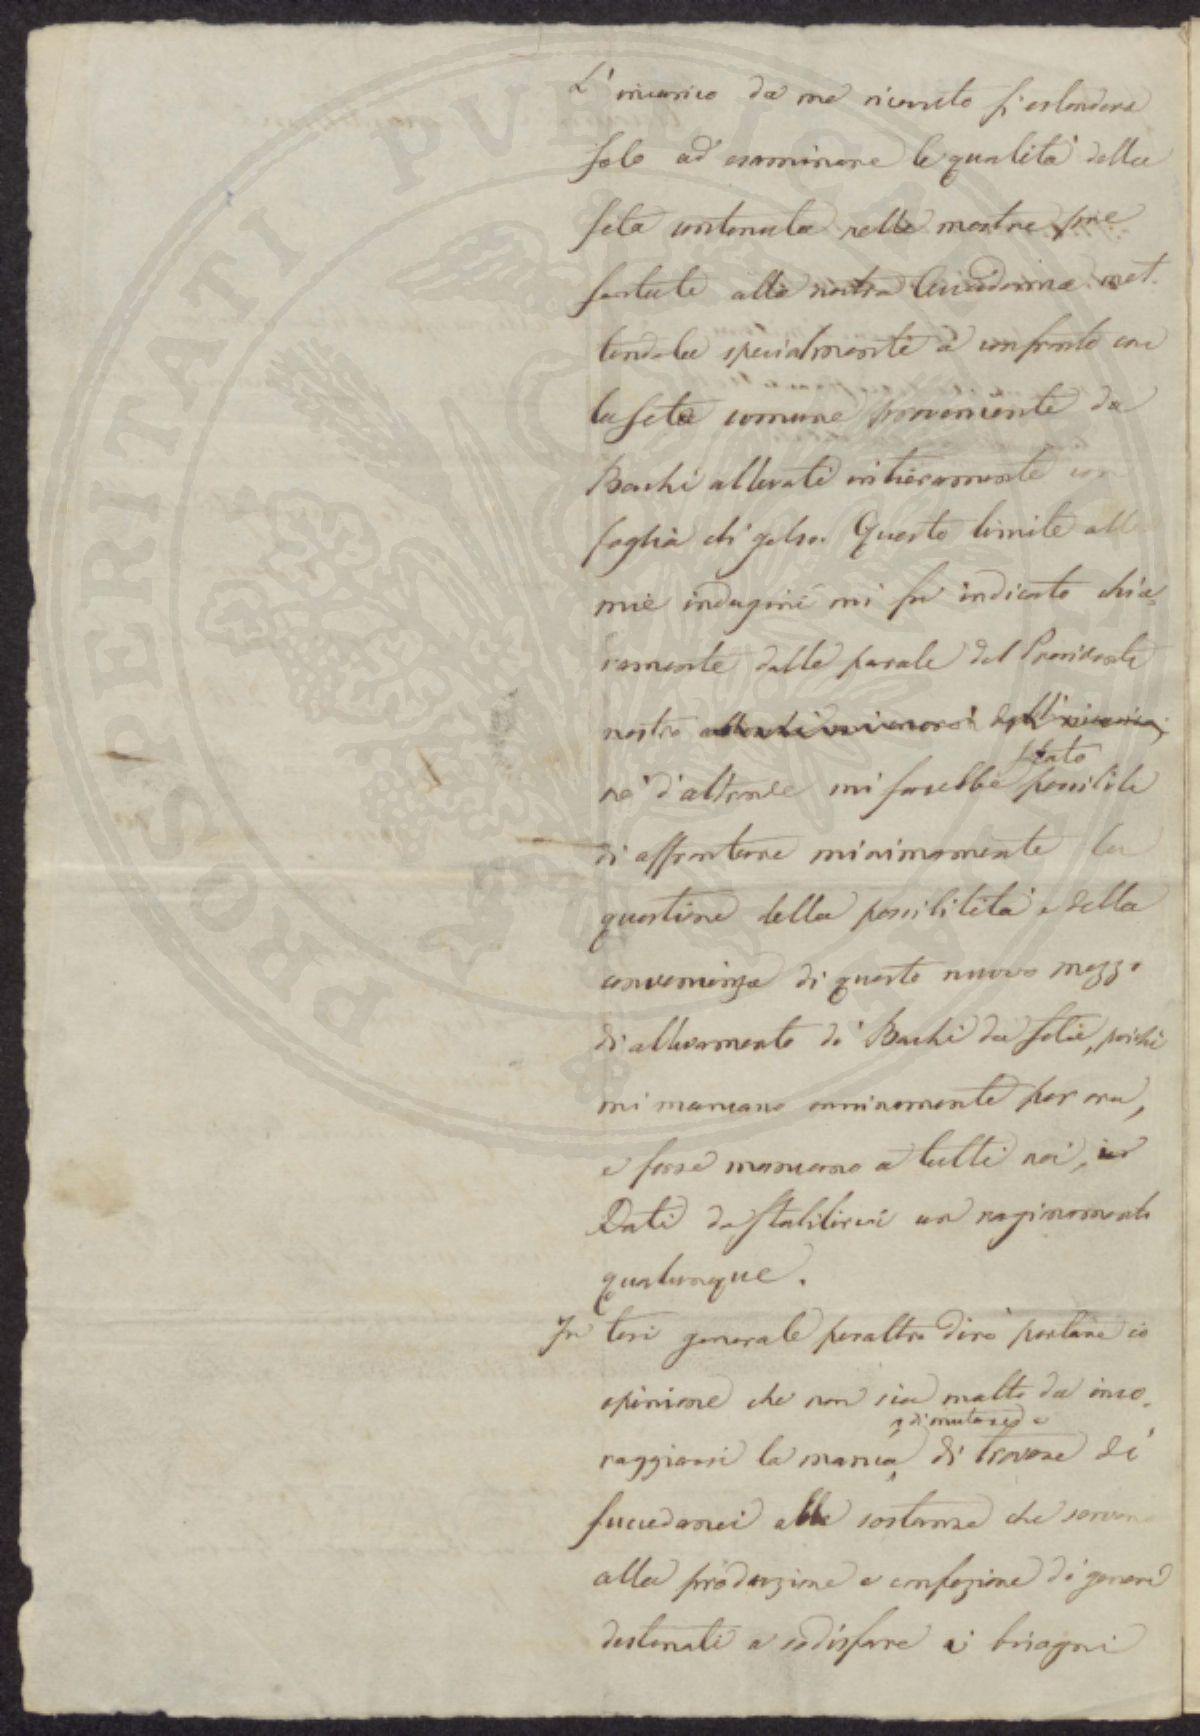 L'incarico da me ricevuto si estendeva
solo ad esaminare le qualità della
seta contenuta nelle mostre pre
sentate alla nostra Accademia met
tendola specialmente a confronto con
la seta comune proveniente da
Bachi allevati intieramente con
foglia di gelso. Questo limite alle
mie indagini mi fu indicato chia=
ramente dalle parole del Presidente
nostro
stato
nè d'altronde mi sarebbe possibile
di affrontare minimamente la
questione della possibilità e della
convenienza di questo nuovo mezzo
di allevamento de' Bachi da seta, poichè
mi mancano onninamente per ora,
e forse mancano a tutti noi, i
Dati da stabilirvi un ragionamento
qualunque.
In tesi generale peraltro dirò portare io
opinione che non sia molto da inco-
di mutare o
raggiarsi la mania di trovare dei
succedanei alle sostanze che servono
alla produzione e confezione di generi
destinati a sodisfare ai bisogni
PROSPERITATI PVBLICAE AVGENDAE